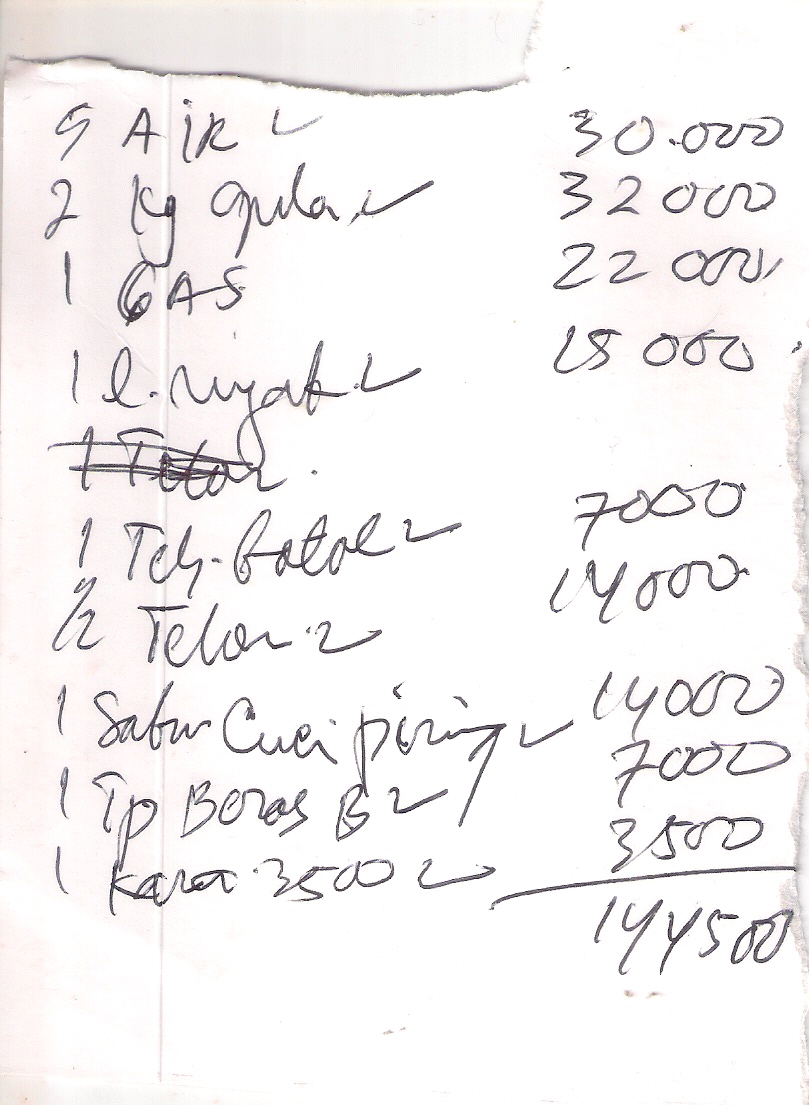 5 AIR 30.000
2 kg gula 32 000
1 GAS 22 000
1 15 000
1 Telor
1 Teh botol 7000
1/2 Telor 14000
1 Sabun Cuci piring 14000
1 Tp Beras B 7000
1 kara 3500 3500
144500